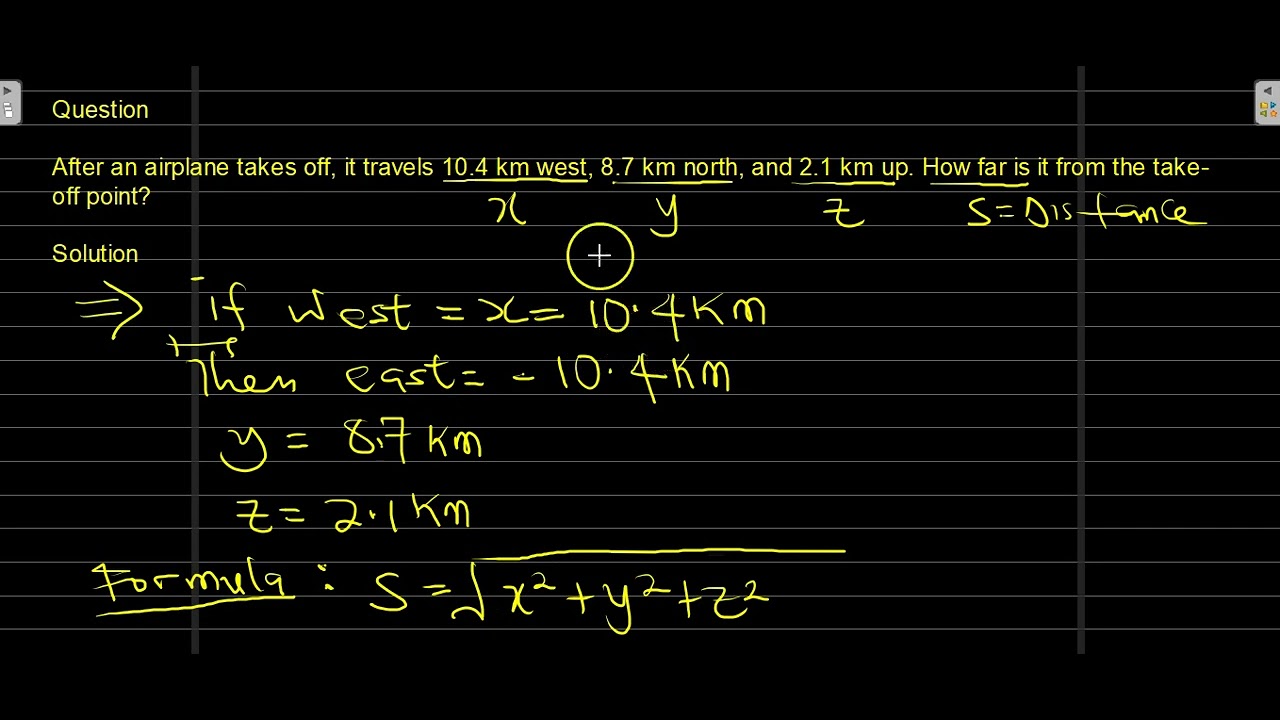 Question
After an airplane takes off, it travels 10.4 km west, 8.7 km north, and 2.1 km up. How far is it from the take-
off point?
x y z S = Distance
Solution
⇒ if west = x = 10.4 Km
Then east = - 10.4 Km
y = 8.7 Km
z = 2.1 Km
Formula : S = √x² + y² + z²